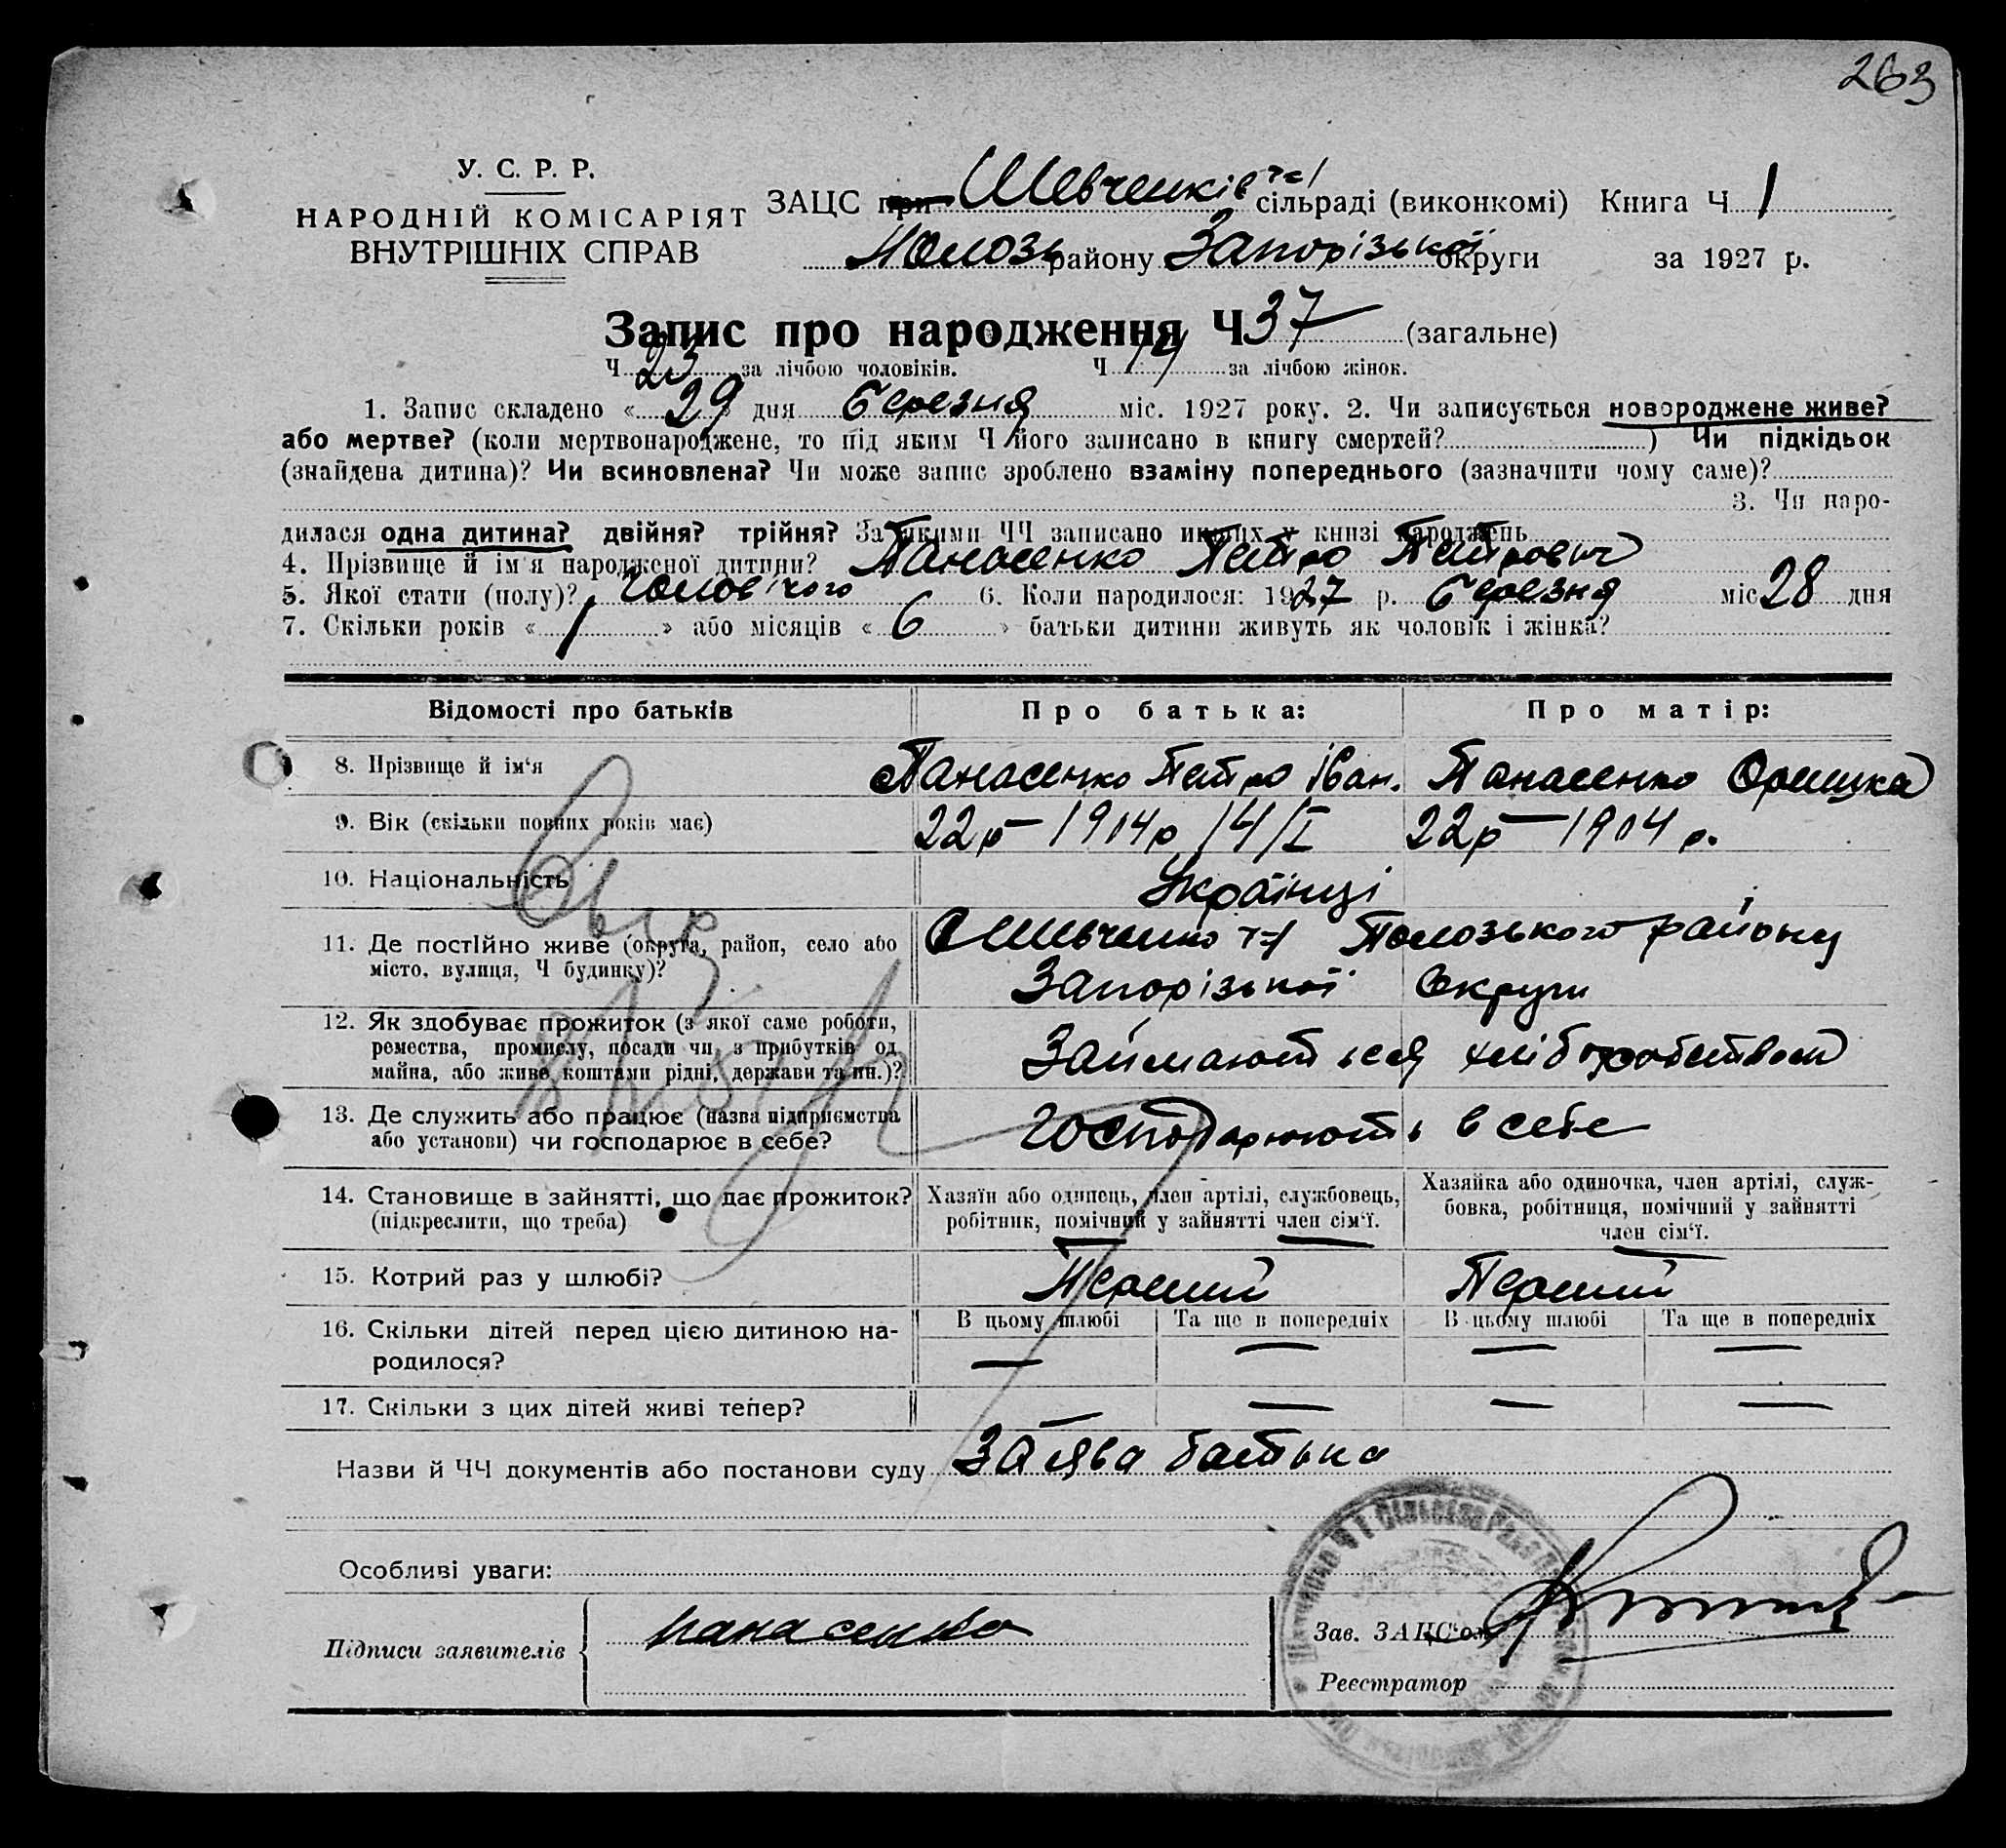 263
У. С. Р. Р.
НАРОДНІЙ КОМІСАРІЯТ
ВНУТРІШНІХ СПРАВ
ЗАЦС при Шевченків ч 1 сільраді (виконкомі) Книга Ч 1
Полозь району Запорізької округи за 1927 р.
Запис про народження Ч 37 (загальне)
Ч 23 за лічбою чоловіків. Ч 14 за лічбою жінок.
1. Запис складено « 29 » дня Березня міс. 1927 року. 2. Чи записується новороджене живе?
або мертве? (коли мертвонароджене, то під яким Ч його записано в книгу смертей? ) Чи підкідьок
(знайдена дитина)? Чи всиновлена? Чи може запис зроблено взаміну попереднього (зазначити чому саме)?
3. Чи наро-
дилася одна дитина? двійня? трійня? За якими ЧЧ записано инших у книзі народжень
4. Прізвище й ім'я народженої дитини? Панасенко Петро Петрович
5. Якої стати (полу)? Чоловічого 6. Коли народилося: 1927 р. Березня міс 28 дня
7. Скільки років « 1 » або місяців « 6 » батьки дитини живуть як чоловік і жінка?
Відомості про батьків Про батька: Про матір:
8. Прізвище й ім'я Панасенко Петро Іван. Панасенко Оришка
9. Вік (скільки повних років має) 22р – 1904р 14/I 22р – 1904 р.
10. Національність Українці
11. Де постійно живе (округа, район, село або
місто, вулиця, Ч будинку)?
С Шевченко ч 1 Полозького району
Запорізької Округи
12. Як здобуває прожиток (з якої саме роботи,
ремества, промислу, посади чи з прибутків од
майна, або живе коштами рідні, держави та ин.)?
Займаються хліборобством
13. Де служить або працює (назва підприємства
або установи) чи господарює в себе?
Господарюють в себе
14. Становище в зайнятті, що дає прожиток?
(підкреслити, що треба)
Хазяїн або одинець, член артілі, службовець,
робітник, помічний у зайнятті член сім'ї.
Хазяйка або одиночка, член артілі, служ-
бовка, робітниця, помічний у зайнятті
член сім'ї.
15. Котрий раз у шлюбі? Перший Перший
16. Скільки дітей перед цією дитиною на-
родилося?
В цьому шлюбі Та ще в попередніх В цьому шлюбі Та ще в попередніх
— — — —
17. Скільки з цих дітей живі тепер? — — — —
Назви й ЧЧ документів або постанови суду Заява батька
Особливі уваги:
Підписи заявителів Панасенко
Зав. ЗАЦС'ом
Реєстратор